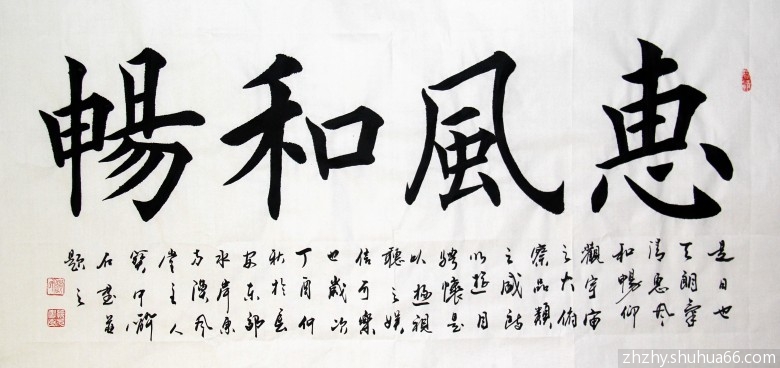 惠風和暢
是日也
天朗氣
清惠风
和暢仰
觀宇宙
之大俯
察品類
之盛所
以遊目
騁懷足
以極視
聽之娱
信可樂
也歲次
丁酉仲
秋於長
安东郊
水岸
方
堂主人
石書並
題之
zhzhy.shuhua66.com